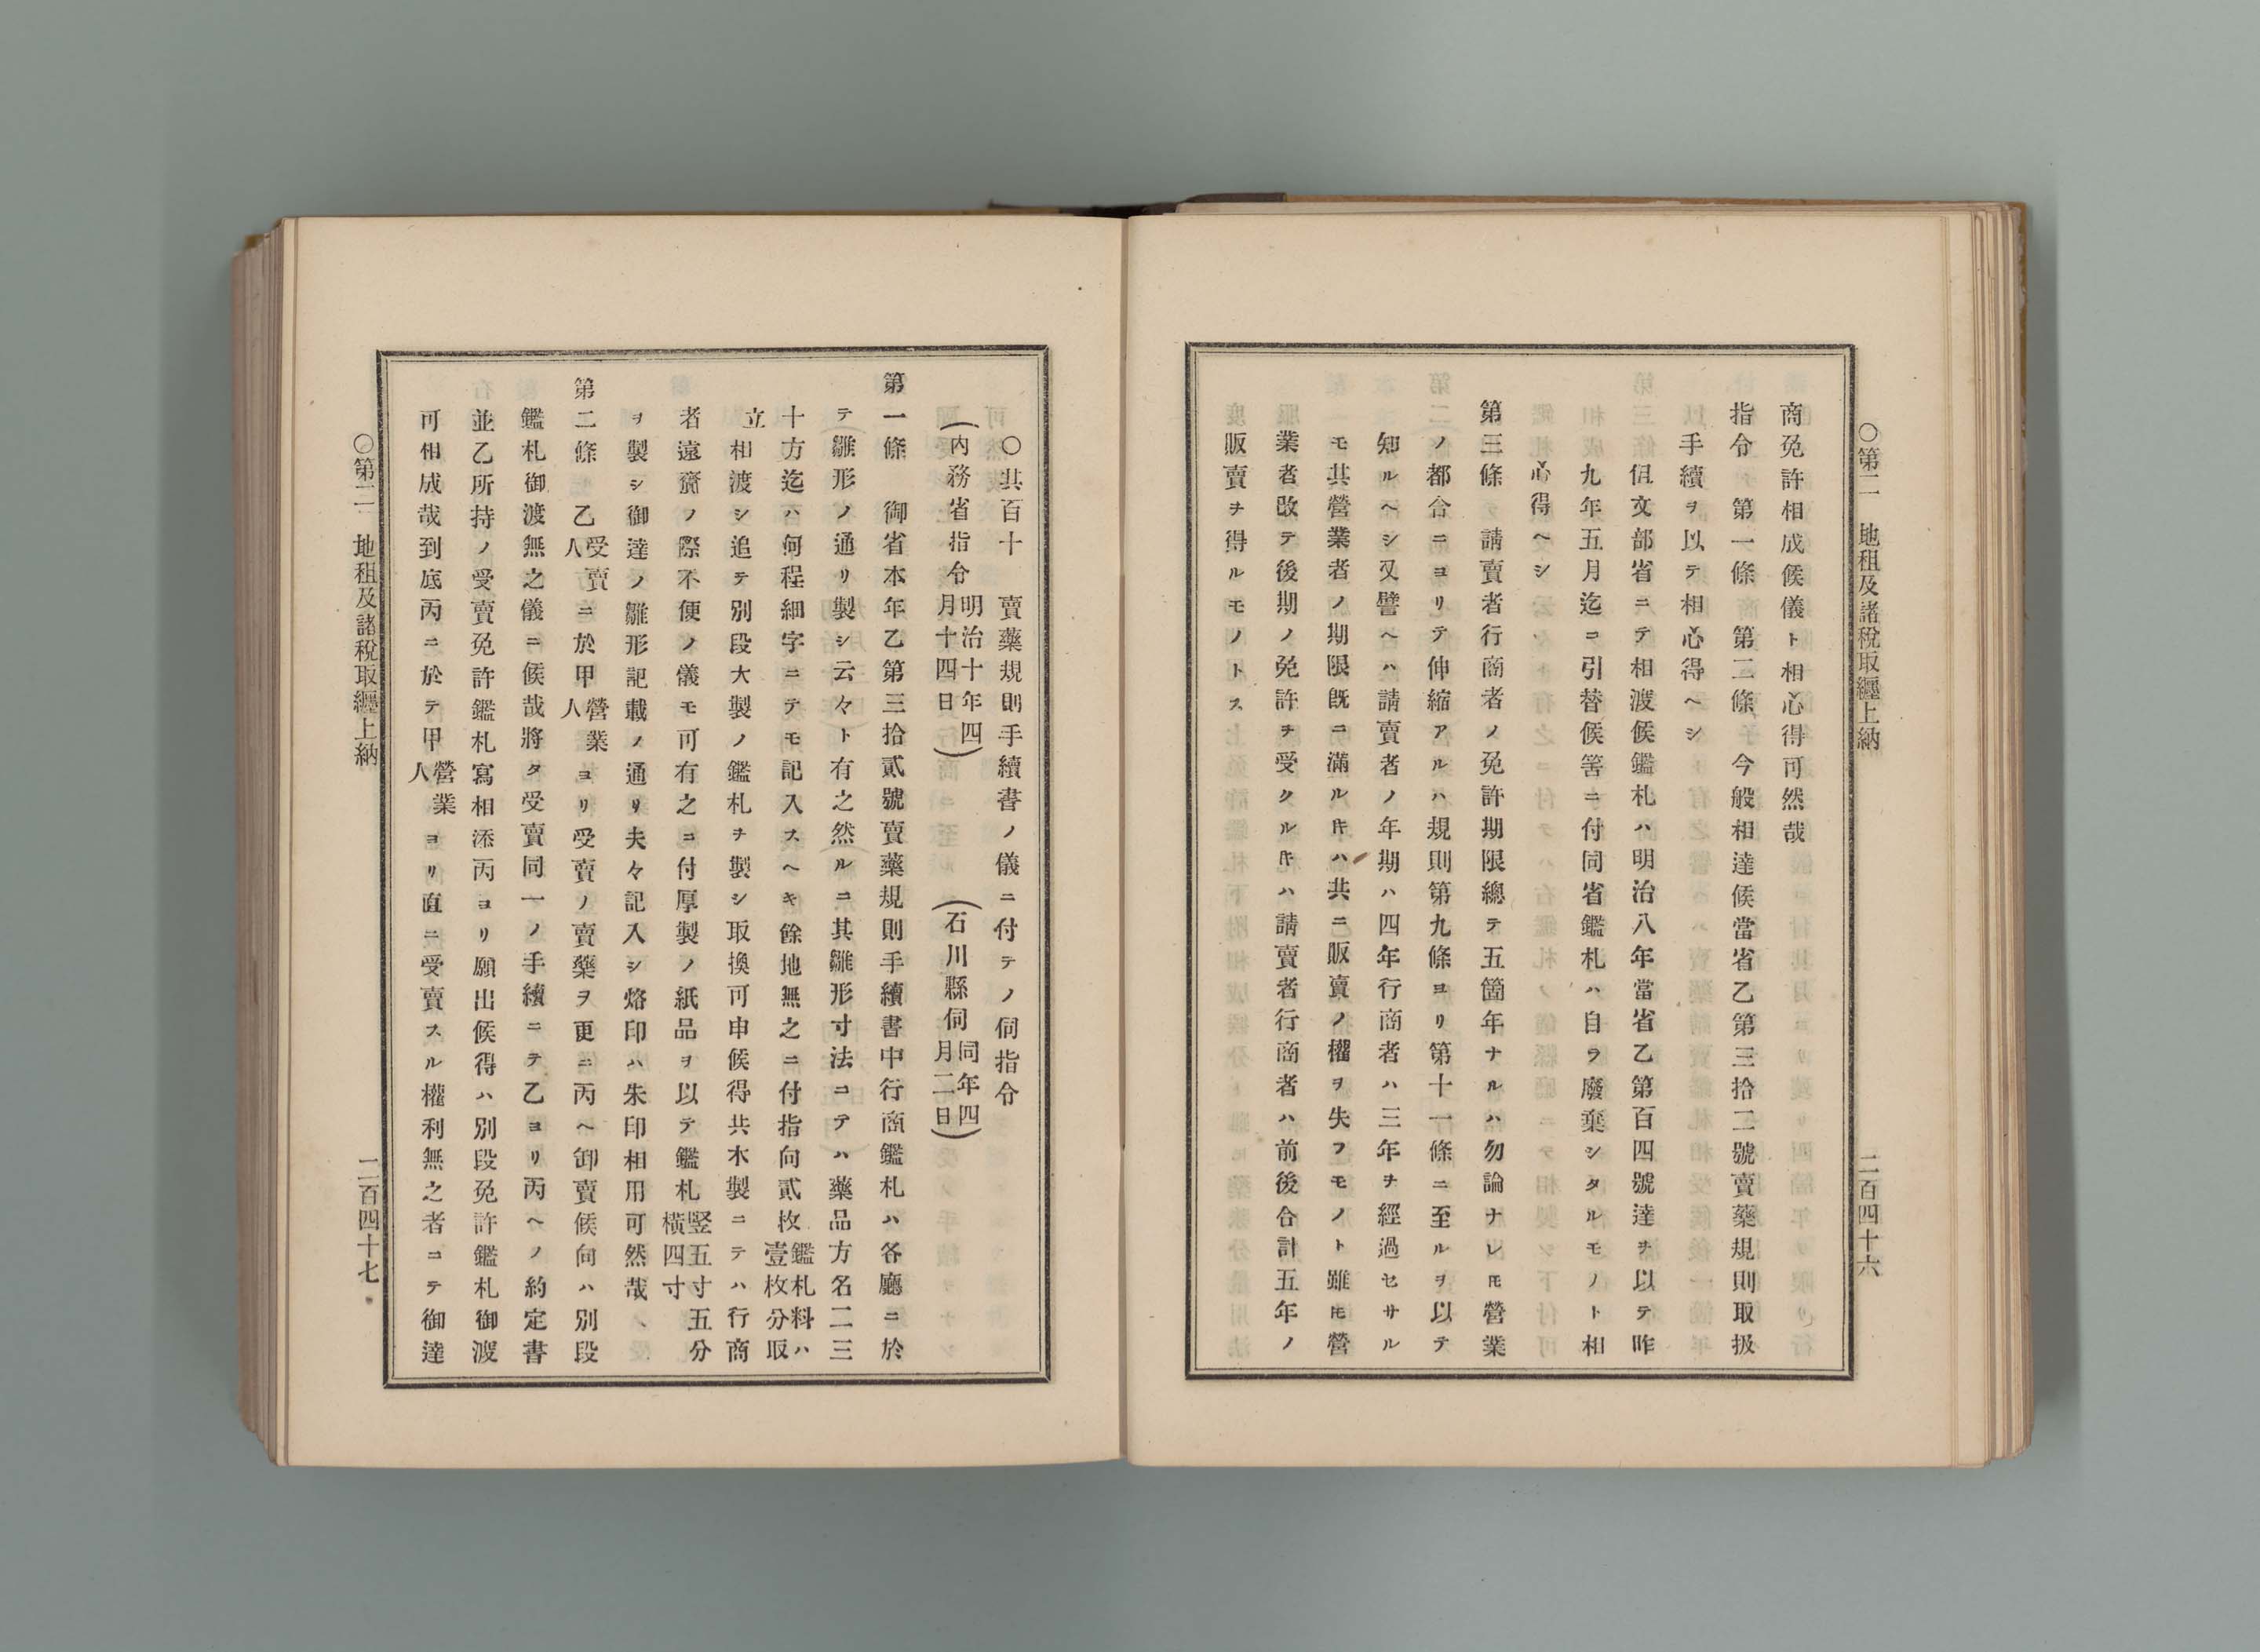 ○第二　地租及諸税取纒上納　二百四十六
商免許相成候儀ト相心得可然哉
指令　第一條　第二條　今般相達候當省乙第三拾二號賣藥規則取扱
手續ヲ以テ相心得ヘシ
但文部省ニテ相渡候鑑札ハ明治八年當省乙第百四號達ヲ以テ昨
九年五月迄ニ引替候筈ニ付同省鑑札ハ自ラ廢棄シタルモノト相
心得ヘシ
第三條　請賣者行商者ノ免許期限總テ五箇年ナルハ勿論ナレ𪜈營業
ノ都合ニヨリテ伸縮アルハ規則第九條ヨリ第十一條ニ至ルヲ以テ
知ルヘシ又譬ヘハ請賣者ノ年期ハ四年行商者ハ三年ヲ經過セサル
モ其營業者ノ期限既ニ滿ルキハ共ニ販賣ノ權ヲ失フモノト雖𪜈營
業者改テ後期ノ免許ヲ受クルキハ請賣者行商者ハ前後合計五年ノ
販賣ヲ得ルモノトス
○其百十　賣藥規則手續書ノ儀ニ付テノ伺指令
（内務省指令明治十年四月十四日）　（石川縣伺同年四月二日）
第一條　御省本年乙第三拾貳號賣藥規則手續書中行商鑑札ハ各廳ニ於
テ雛形ノ通リ製シ云々ト有之然ルニ其雛形寸法ニテハ藥品方名二三
十方迄ハ何程細字ニテモ記入スヘキ餘地無之ニ付指向貳枚鑑札料ハ壹枚分取
立相渡シ追テ別段大製ノ鑑札ヲ製シ取換可申候得共木製ニテハ行商
者遠齎ノ際不便ノ儀モ可有之ニ付厚製ノ紙品ヲ以テ鑑札竪五寸五分橫四寸
ヲ製シ御達ノ雛形記載ノ通リ夫々記入シ烙印ハ朱印相用可然哉
第二條　乙受賣人ニ於甲營業人ヨリ受賣ノ賣藥ヲ更ニ丙ヘ卸賣候向ハ別段
鑑札御渡無之儀ニ候哉將タ受賣同一ノ手續ニテ乙ヨリ丙ヘノ約定書
並乙所持ノ受賣免許鑑札寫相添丙ヨリ願出候得ハ別段免許鑑札御渡
可相成哉到底丙ニ於テ甲營業人ヨリ直ニ受賣スル權利無之者ニテ御達
○第二　地租及諸税取纒上納　二百四十七